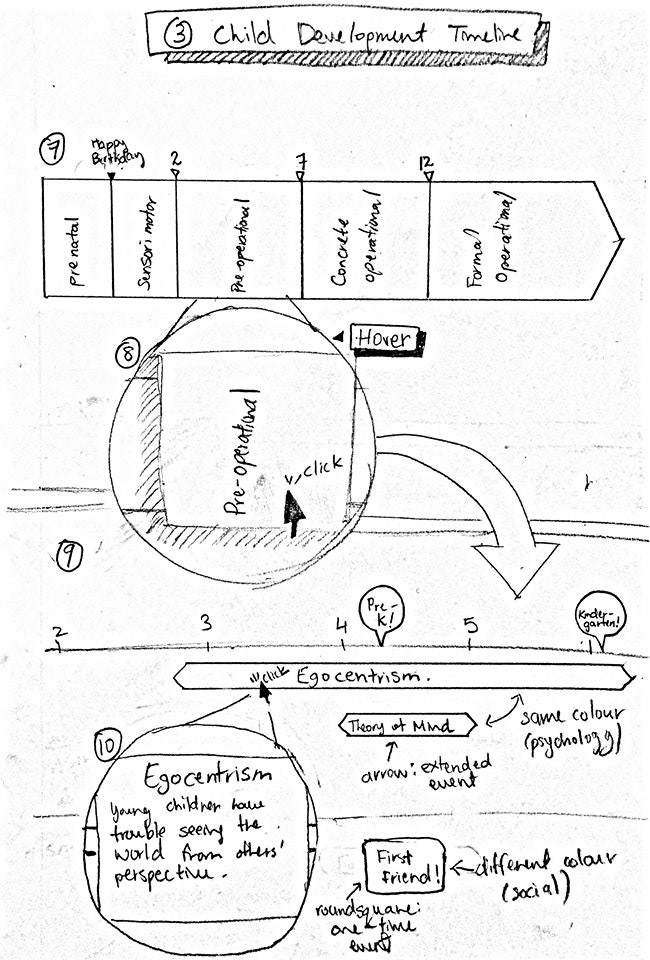 ③ Child Development Timeline
⑦
Happy
Birthday
2
7
12
prenatal
Sensorimotor
Pre-operational
Concrete
operational
Formal
Operational
⑧
Hover
Pre-operational
click
⑨
2
3
4
Pre-
k!
5
Kinder-
garten!
click
Egocentrism.
Theory of Mind
same colour
(psychology)
arrow: extended
event
⑩
Egocentrism
Young children have
trouble seeing the
world from others'
perspective.
First
friend!
different colour
(social)
roundsquare:
one-time
event